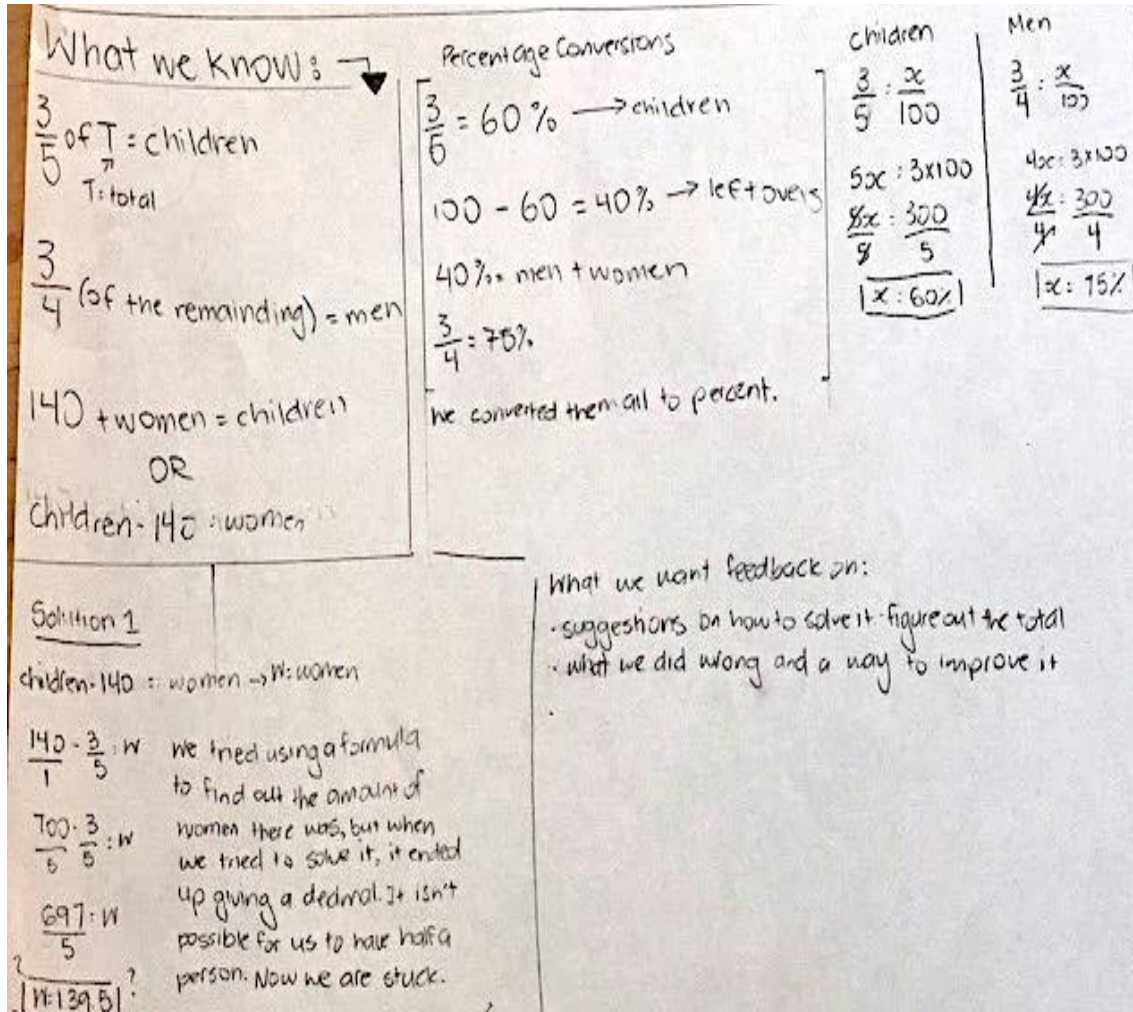 What we know:
3/5 of T = children
T: total
3/4 (of the remainding) = men
140 + women = children
OR
Children - 140 = women
Percentage Conversions
3/5 = 60% → children
100 - 60 = 40% → leftovers
40% = men + women
3/4 = 75%
we converted them all to percent.
children
3/5 = x/100
5x = 3x100
5x/5 = 300/5
x = 60%
Men
3/4 = x/100
4x = 3x100
4x/4 = 300/4
x = 75%
Solution 1
children - 140 = women → W = women
140/1 - 3/5 = W
700/5 - 3/5 = W
697/5 = W
? W = 139.5 ?
We tried using a formula
to find out the amount of
women there was, but when
we tried to solve it, it ended
up giving a decimal. It isn't
possible for us to have half a
person. Now we are stuck.
What we want feedback on:
· suggestions on how to solve it · figure out the total
· what we did wrong and a way to improve it
·